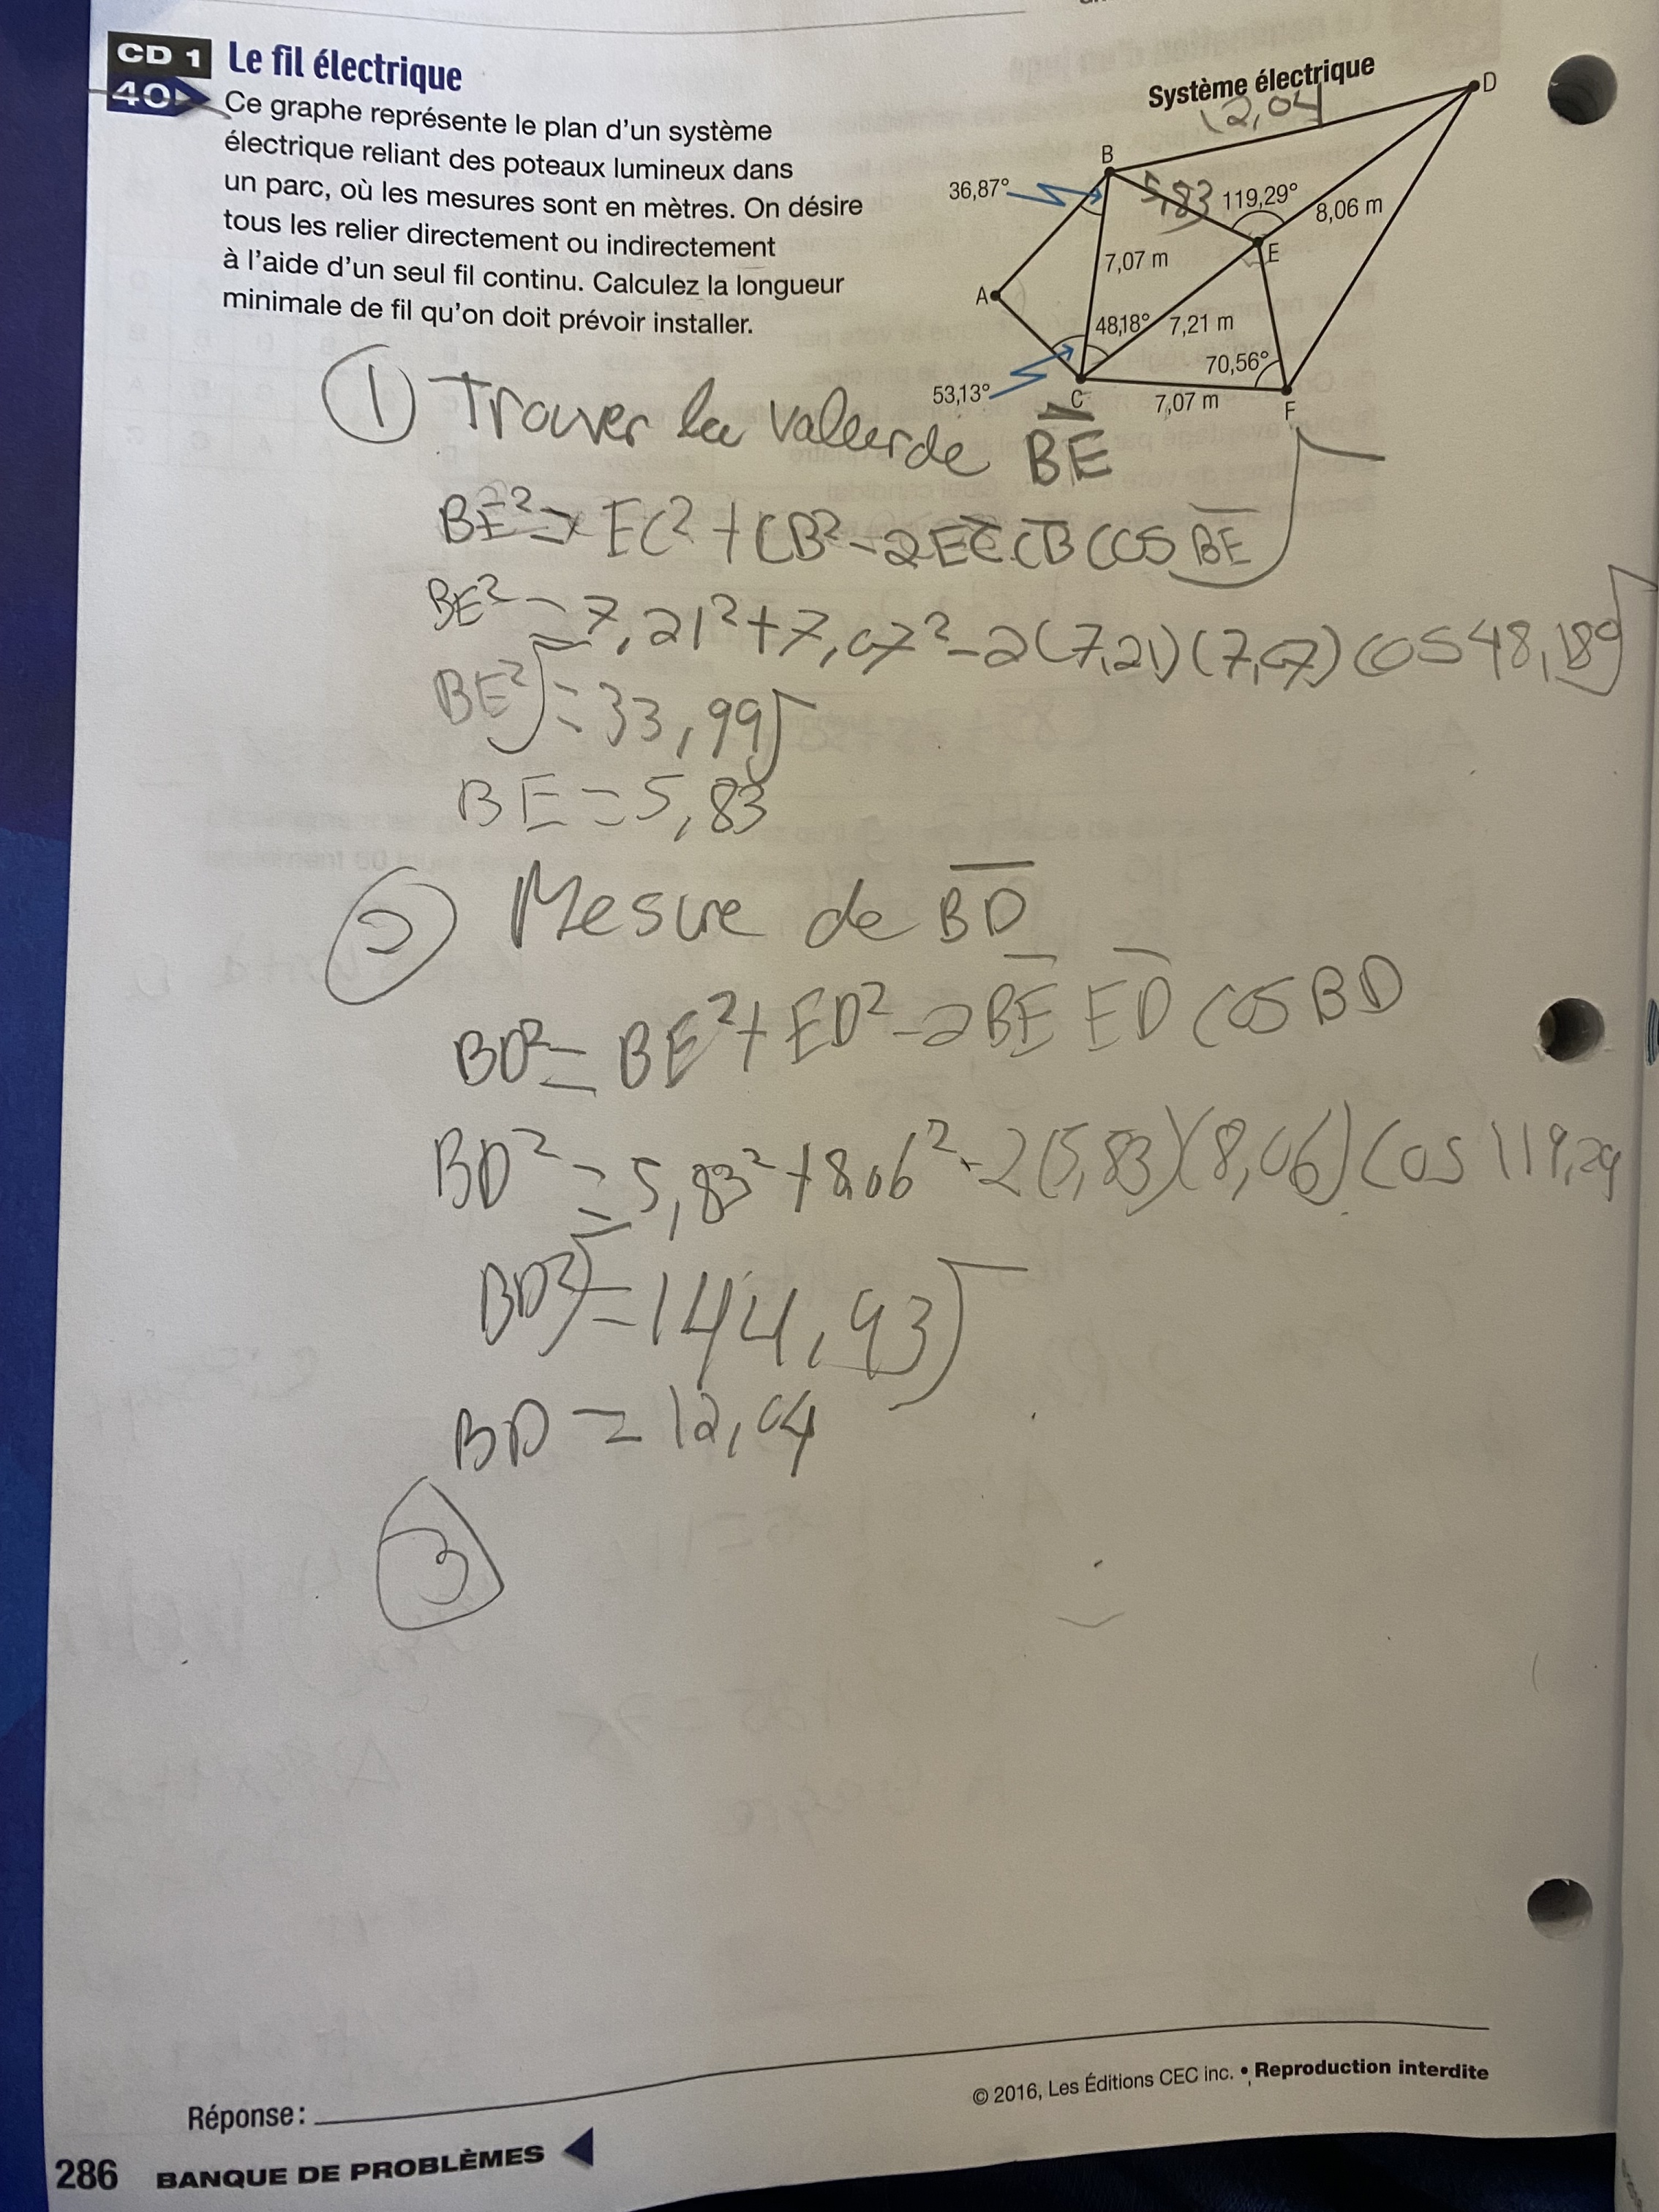 CD 1 Le fil électrique
40
Ce graphe représente le plan d'un système
électrique reliant des poteaux lumineux dans
un parc, où les mesures sont en mètres. On désire
tous les relier directement ou indirectement
à l'aide d'un seul fil continu. Calculez la longueur
minimale de fil qu'on doit prévoir installer.
Système électrique
12,04
D
B
36,87°
5,83
119,29°
8,06 m
7,07 m
E
A
48,18°
7,21 m
70,56°
53,13°
C
7,07 m
F
① Trouver la valeur de BE
BE² = EC² + CB² - 2 EC CB cos BE
BE² = 7,21² + 7,07² - 2(7,21)(7,07) cos 48,18°
BE² = 33,99
BE = 5,83
② Mesure de BD
BD² = BE² + ED² - 2 BE ED cos BD
BD² = 5,83² + 8,06² - 2(5,83)(8,06) cos 119,29
BD² = 144,93
BD = 12,04
3
© 2016, Les Éditions CEC inc. • Reproduction interdite
Réponse :
286 BANQUE DE PROBLÈMES